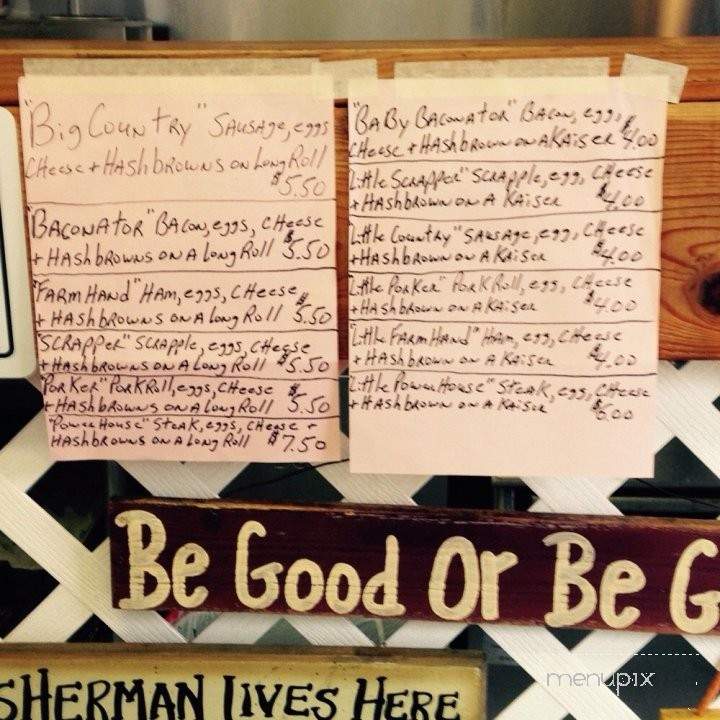 "Big Country" Sausage, eggs
Cheese + Hashbrowns on Long Roll
$5.50
"Baconator" Bacon, eggs, Cheese
+ Hashbrowns on A Long Roll $5.50
"Farm Hand" Ham, eggs, Cheese
+ Hashbrowns on A Long Roll $5.50
"Scrapper" Scrapple, eggs, Cheese
+ Hashbrowns on A Long Roll $5.50
"Porker" Pork Roll, eggs, Cheese
+ Hashbrowns on A Long Roll $5.50
"Power House" Steak, eggs, Cheese +
Hashbrowns on A Long Roll $7.50
"Baby Baconator" Bacon, egg,
Cheese + Hashbrown on A Kaiser $4.00
"Little Scrapper" Scrapple, egg, Cheese
+ Hashbrown on A Kaiser $4.00
"Little Country" Sausage, egg, Cheese
+ Hashbrown on A Kaiser $4.00
"Little Porker" Pork Roll, egg, Cheese
+ Hashbrown on A Kaiser $4.00
"Little Farm Hand" Ham, egg, Cheese
+ Hashbrown on A Kaiser $4.00
"Little Power House" Steak, egg, Cheese
+ Hashbrown on A Kaiser $6.00
Be Good Or Be G
SHERMAN LIVES HERE
menupix